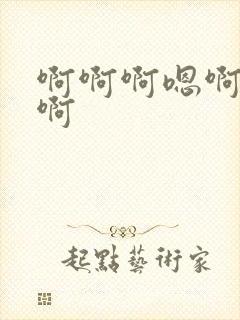 啊啊啊嗯啊
啊
起點藝術家